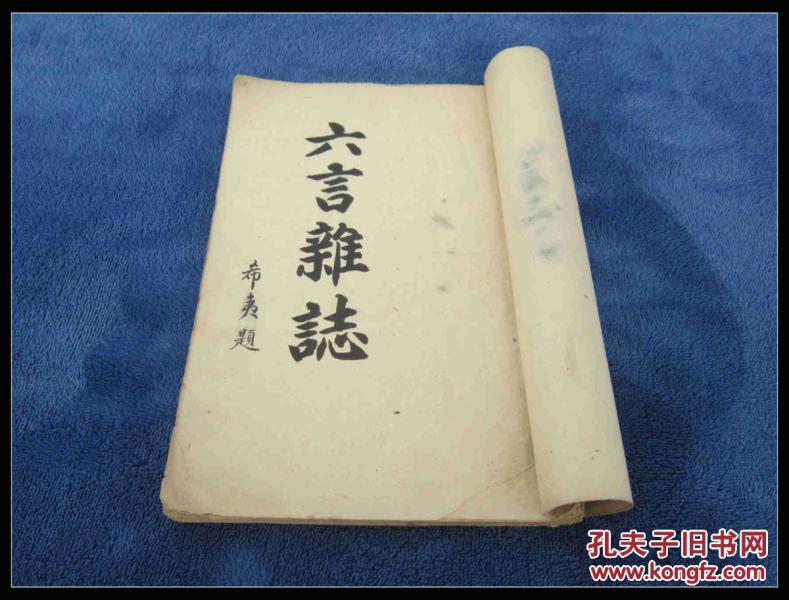 六言雜誌
希夷題
孔夫子旧书网
www.kongfz.com